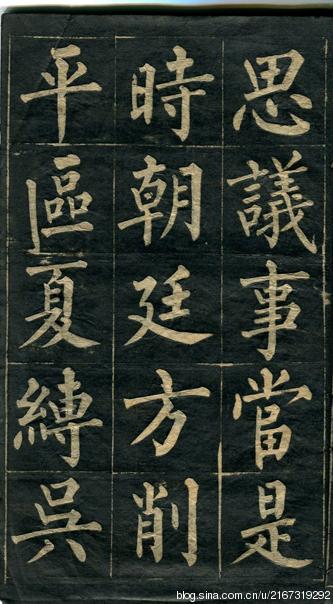 思議事當是
時朝廷方削
平區夏縛吳
blog.sina.com.cn/u/2167319292